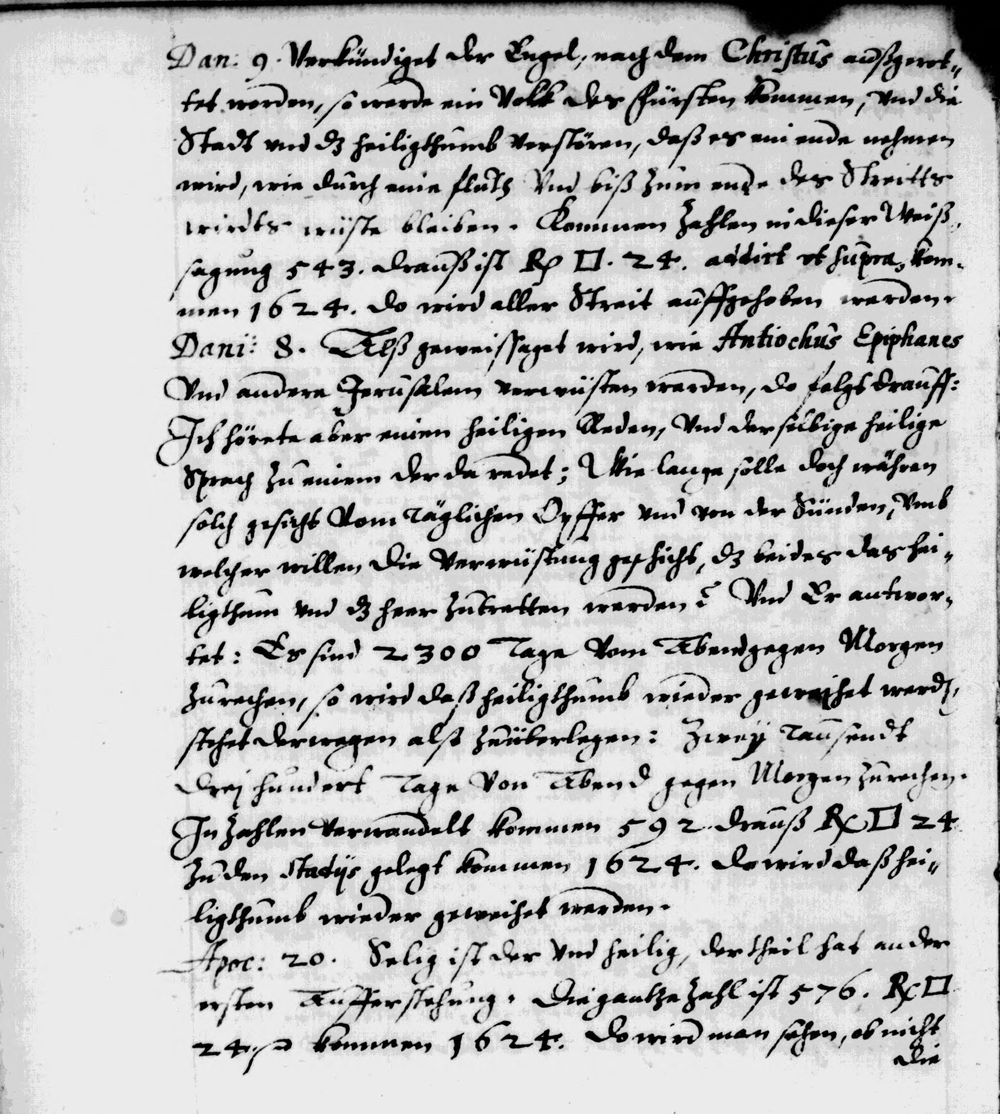 Dan: 9. Verkündiget der Engel, nach dem Christus außgerot-
tet worden, so werde ein Volk des Fürsten kommen, Vnd die
Stadt vnd dz heiligthumb verstören, daß es ein ende nehmen
wird, wie durch eine fluth Vnd biß zum ende des Streitts
wirdts wüste bleiben. Kommen Zahlen in dieser Weiß-
sagung 543. drauß ist R □. 24. addirt vt supra, kom-
men 1624. do wird aller Streit auffgehoben werden.
Dani: 8. Alß geweissaget wird, wie Antiochus Epiphanes
Vnd andere Jerusalem verwüsten werden, do folgt drauff:
Ich hörete aber einen heiligen Reden, Vnd derselbige heilige
Sprach zu einem der da redet; Wie lange solle doch währen
solch gesicht Vom Täglichen Opffer vnd von der Sünden, Vmb
welcher willen die verwüstung geschicht, dz beides das hei-
ligthum vnd dz heer zutretten werden? Vnd Er antwor-
tet: Es sind 2300 Tage Vom Abend gegen Morgen
zurechen, so wird daß heiligthumb wieder geweihet werdn,
stehet derwegen alß zuüberlegen: Zwey Tausendt
drej hundert Tage Von Abend gegen Morgen zurechen.
In Zahlen verwandelt kommen 592 drauß R □ 24
zu den statijs gelegt kommen 1624. do wird daß hei-
ligthumb wieder geweihet werden.
Apoc: 20. Selig ist der vnd heilig, der theil hat an der
ersten Aufferstehung. Die gantze Zahl ist 576. R □
24. kommen 1624. do wird man sehen, ob nicht
die